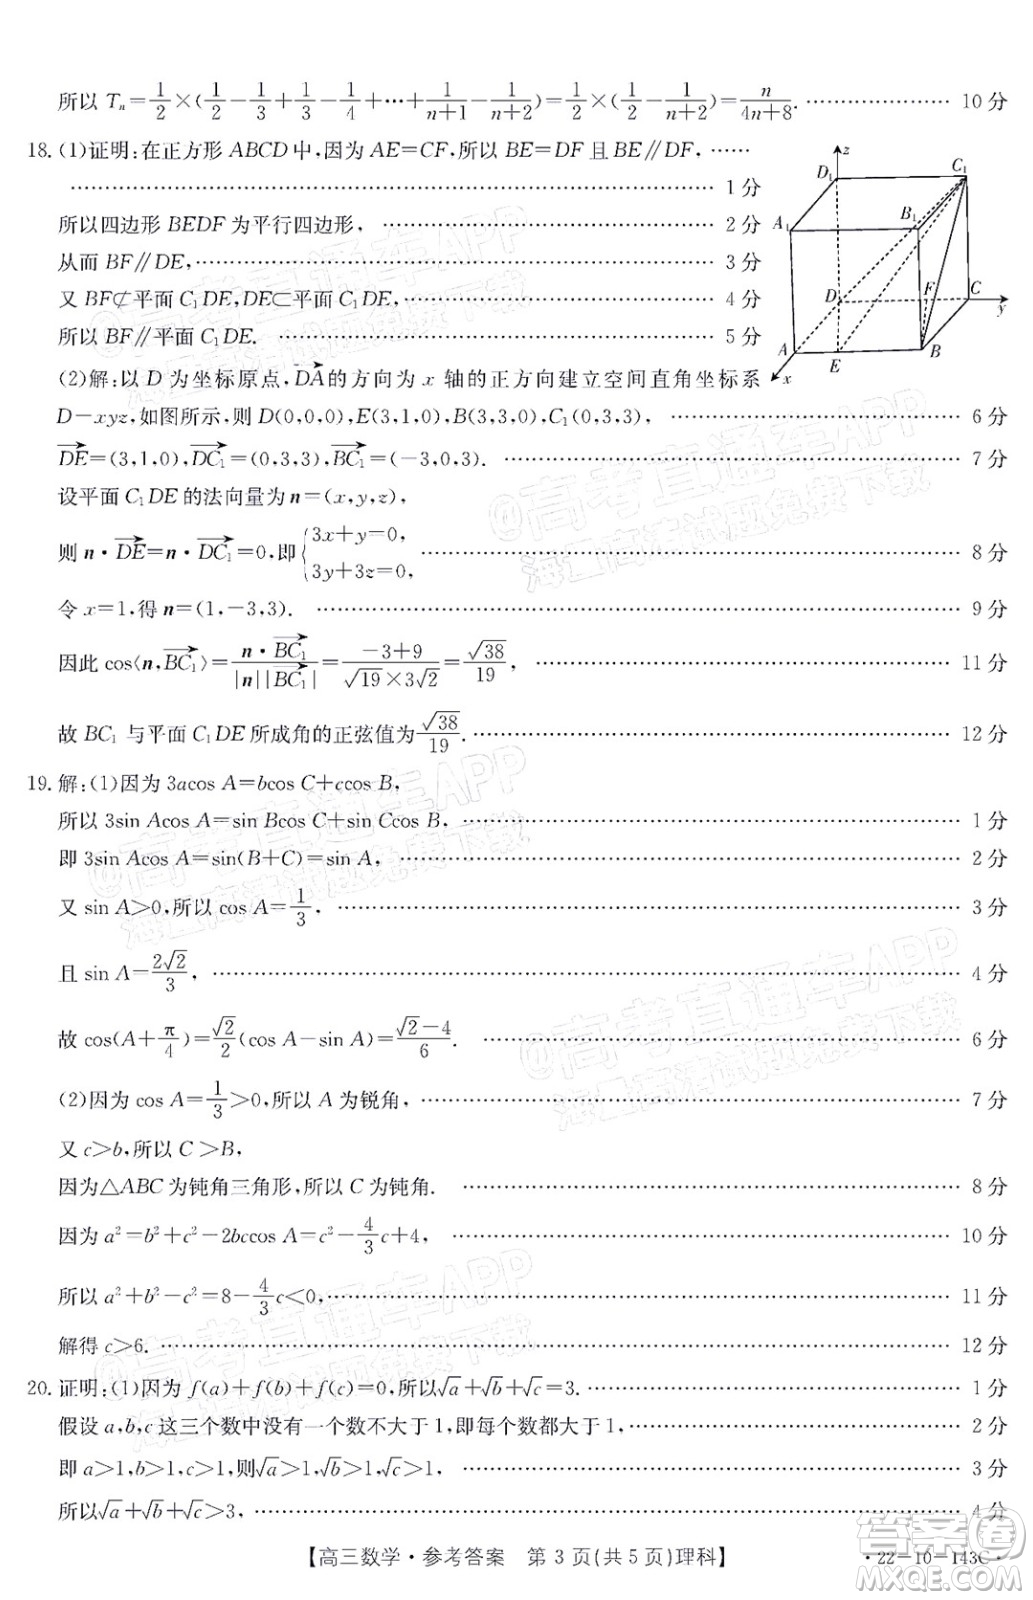 所以 Tₙ=1/2×(1/2−1/3+1/3−1/4+⋯+1/(n+1)−1/(n+2))=1/2×(1/2−1/(n+2))=n/(4n+8). …… 10 分
18. (1)证明:在正方形 ABCD 中,因为 AE=CF,所以 BE=DF 且 BE∥DF, ……
…… 1 分
所以四边形 BEDF 为平行四边形, …… 2 分
从而 BF∥DE, …… 3 分
又 BF⊄平面 C₁DE,DE⊂平面 C₁DE, …… 4 分
所以 BF∥平面 C₁DE. …… 5 分
z
D₁
C₁
A₁
B₁
D
F
C
y
A
E
B
x
(2)解:以 D 为坐标原点,DA→的方向为 x 轴的正方向建立空间直角坐标系
D−xyz,如图所示,则 D(0,0,0),E(3,1,0),B(3,3,0),C₁(0,3,3), …… 6 分
DE→=(3,1,0),DC₁→=(0,3,3),BC₁→=(−3,0,3). …… 7 分
设平面 C₁DE 的法向量为 n=(x,y,z),
则 n·DE→=n·DC₁→=0,即{3x+y=0, 3y+3z=0, …… 8 分
令 x=1,得 n=(1,−3,3). …… 9 分
因此 cos⟨n,BC₁→⟩=n·BC₁→/(|n||BC₁→|)=(−3+9)/(√19×3√2)=√38/19, …… 11 分
故 BC₁ 与平面 C₁DE 所成角的正弦值为√38/19. …… 12 分
19. 解:(1)因为 3acos A=bcos C+ccos B,
所以 3sin Acos A=sin Bcos C+sin Ccos B, …… 1 分
即 3sin Acos A=sin(B+C)=sin A, …… 2 分
又 sin A>0,所以 cos A=1/3, …… 3 分
且 sin A=2√2/3, …… 4 分
故 cos(A+π/4)=√2/2(cos A−sin A)=(√2−4)/6. …… 6 分
(2)因为 cos A=1/3>0,所以 A 为锐角, …… 7 分
又 c>b,所以 C>B,
因为△ABC 为钝角三角形,所以 C 为钝角. …… 8 分
因为 a²=b²+c²−2bccos A=c²−4/3c+4, …… 10 分
所以 a²+b²−c²=8−4/3c<0, …… 11 分
解得 c>6. …… 12 分
20. 证明:(1)因为 f(a)+f(b)+f(c)=0,所以√a+√b+√c=3. …… 1 分
假设 a,b,c 这三个数中没有一个数不大于 1,即每个数都大于 1, …… 2 分
即 a>1,b>1,c>1,则√a>1,√b>1,√c>1, …… 3 分
所以√a+√b+√c>3, …… 4 分
【高三数学·参考答案 第 3 页(共 5 页)理科】
·22−10−143C·
@高考直通车APP
海量高清试题免费下载
答案卷
MXQE.COM